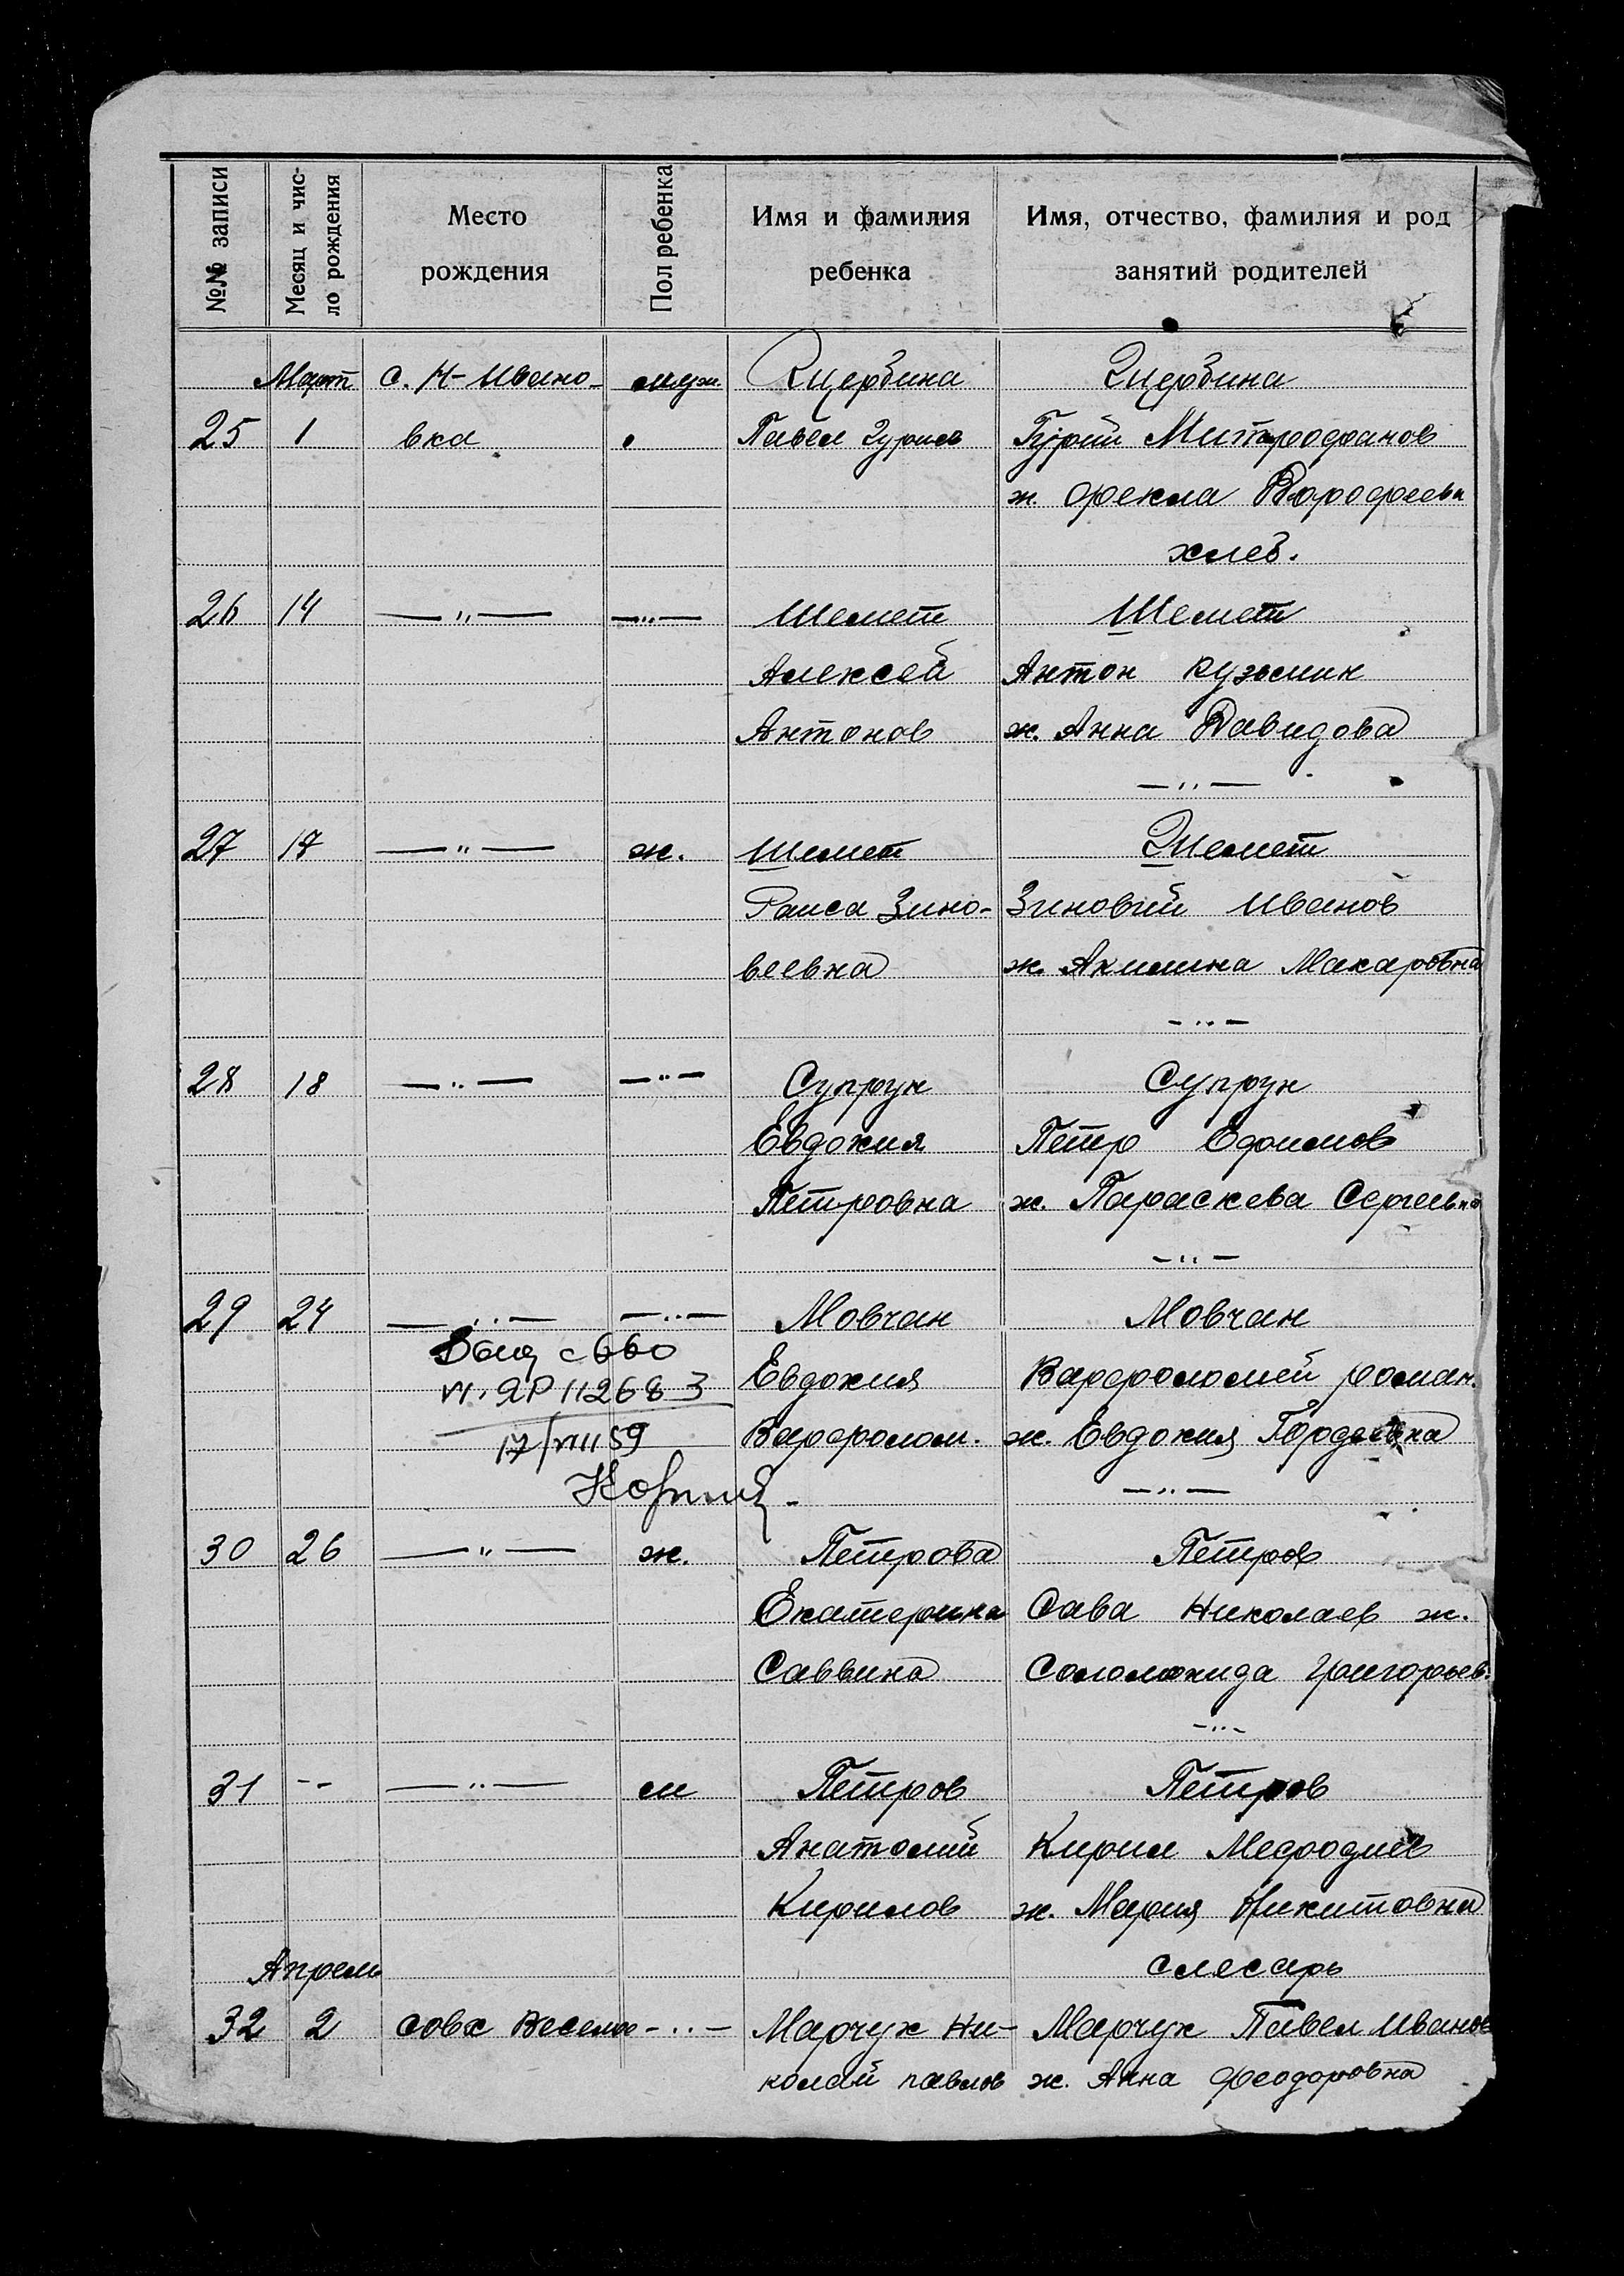 №№ записи
Месяц и чис-
ло рождения
Место
рождения
Пол ребенка
Имя и фамилия
ребенка
Имя, отчество, фамилия и род
занятий родителей
Март с. Н-Ивано- муж. Щербина Щербина
25 1 вка Павел Гуриев Гурий Митрофанов
ж. Фекла Дорофеевн
хлеб.
26 14 —"— —"— Шемет Шемет
Алексей Антон Кузьмин
Антонов ж. Анна Давидова
—"—
27 17 —"— ж. Шемет Шемет
Раиса Зино- Зиновий Иванов
веевна ж. Акилина Макаровна
—"—
28 18 —"— —"— Супрун Супрун
Евдокия Петр Ефимов
Петровна ж. Параскева Сергеевна
—"—
29 24 —"— —"— Мовчан Мовчан
Евдокия Варфоломей роман.
ЯР 112683
Варфолом. ж. Евдокия Гордеевна
17/VIII 59
—"—
30 26 —"— ж. Петрова Петров
Екатерина Сава Николаев ж.
Саввина Соломонида Григорьев.
—"—
31 -- —"— м Петров Петров
Анатолий Кирил Мефодиев
Кирилов ж. Мария Никитовна
Апрель слесарь
32 2 совх Веселое —"— Марчук Ни- Марчук Павел Иванов
колай павлов ж. Анна Феодоровна